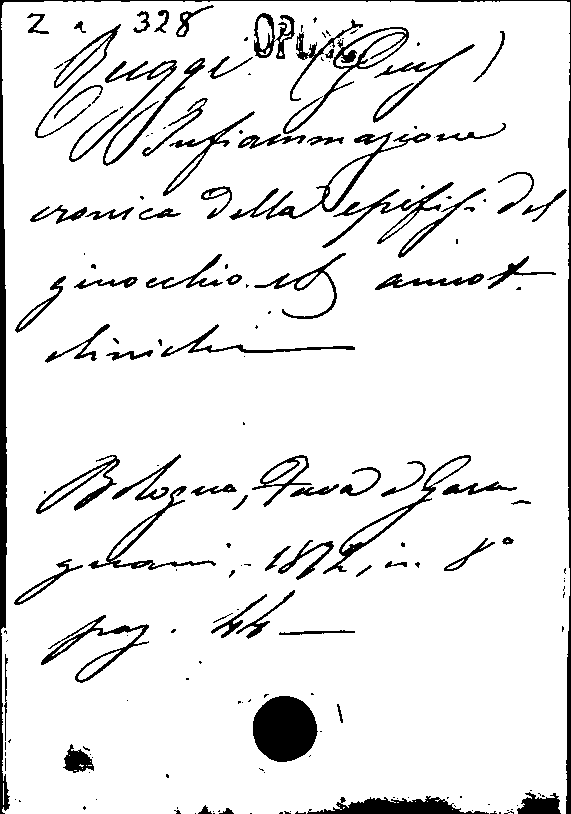 Z a 328 OPUSC.
Ruggi (Gius)
Infiammazione
cronica della epifisi del
ginocchio. annot.
cliniche
Bologna, Fava e Gara-
gnani, 1872, in 8°
pag. 44